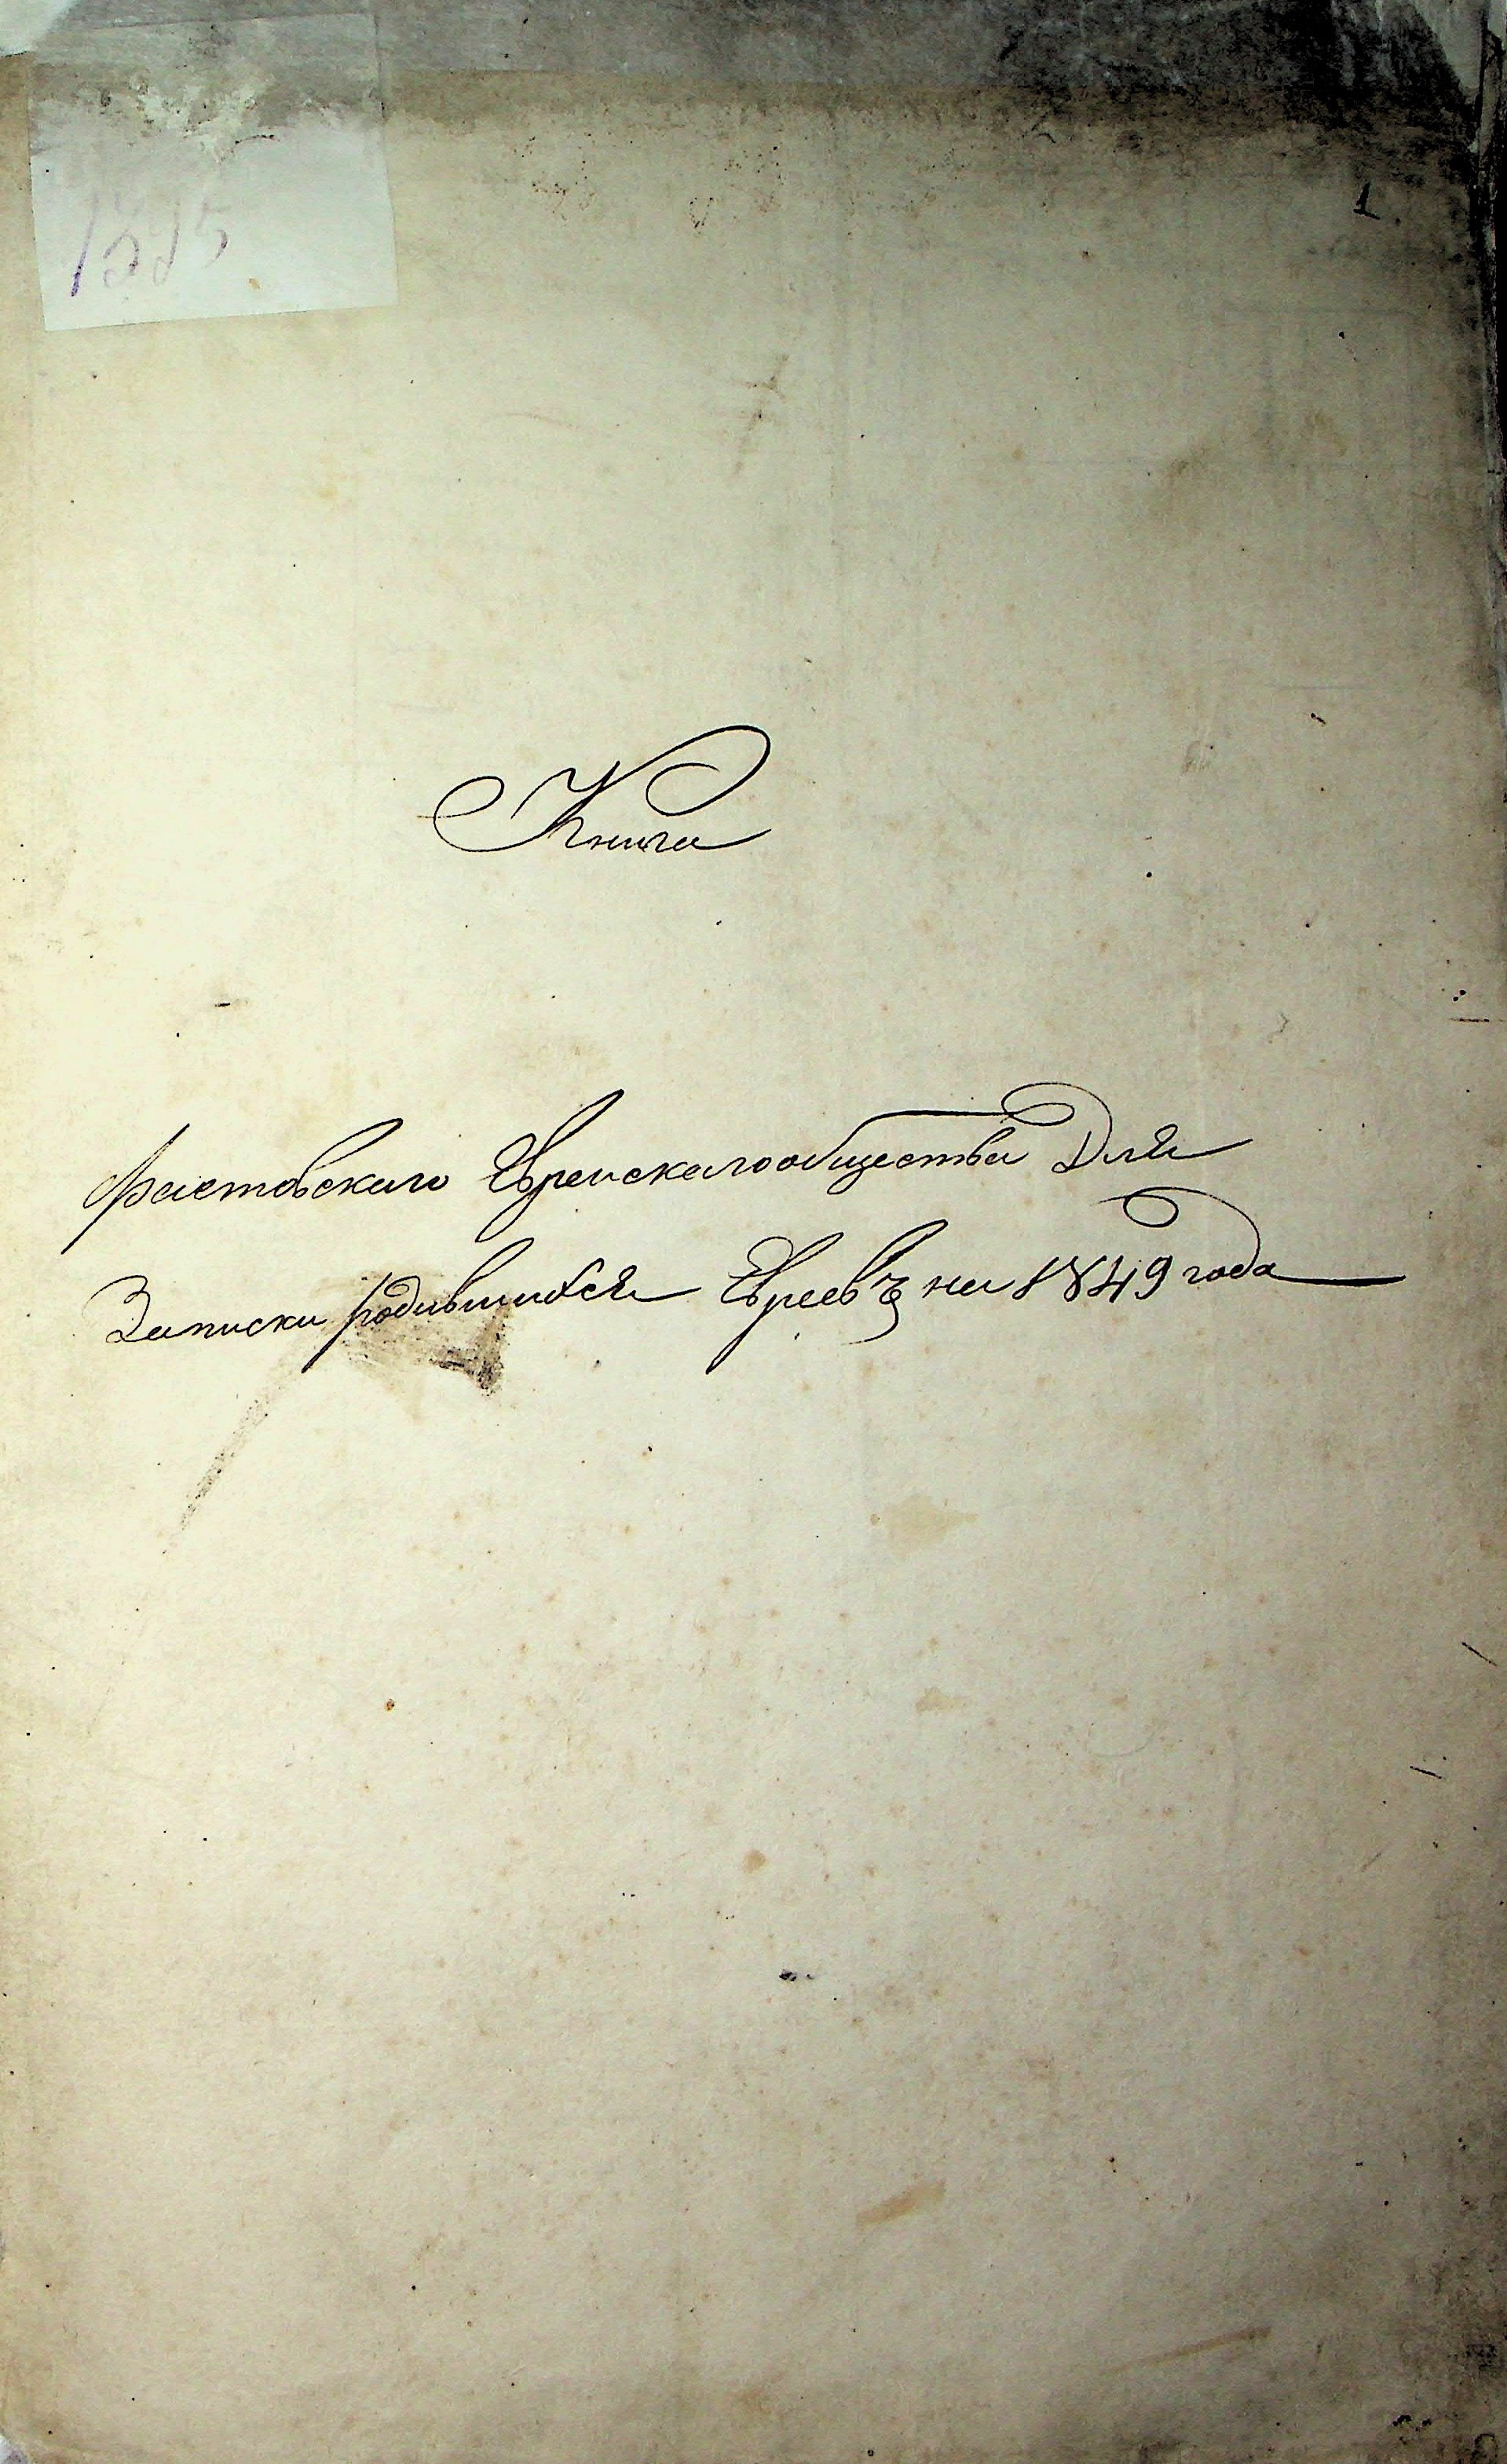 1.
Книга
Фастовскаго Еврейскаго общества Для
Записки родившихся Евреевъ на 1849 года